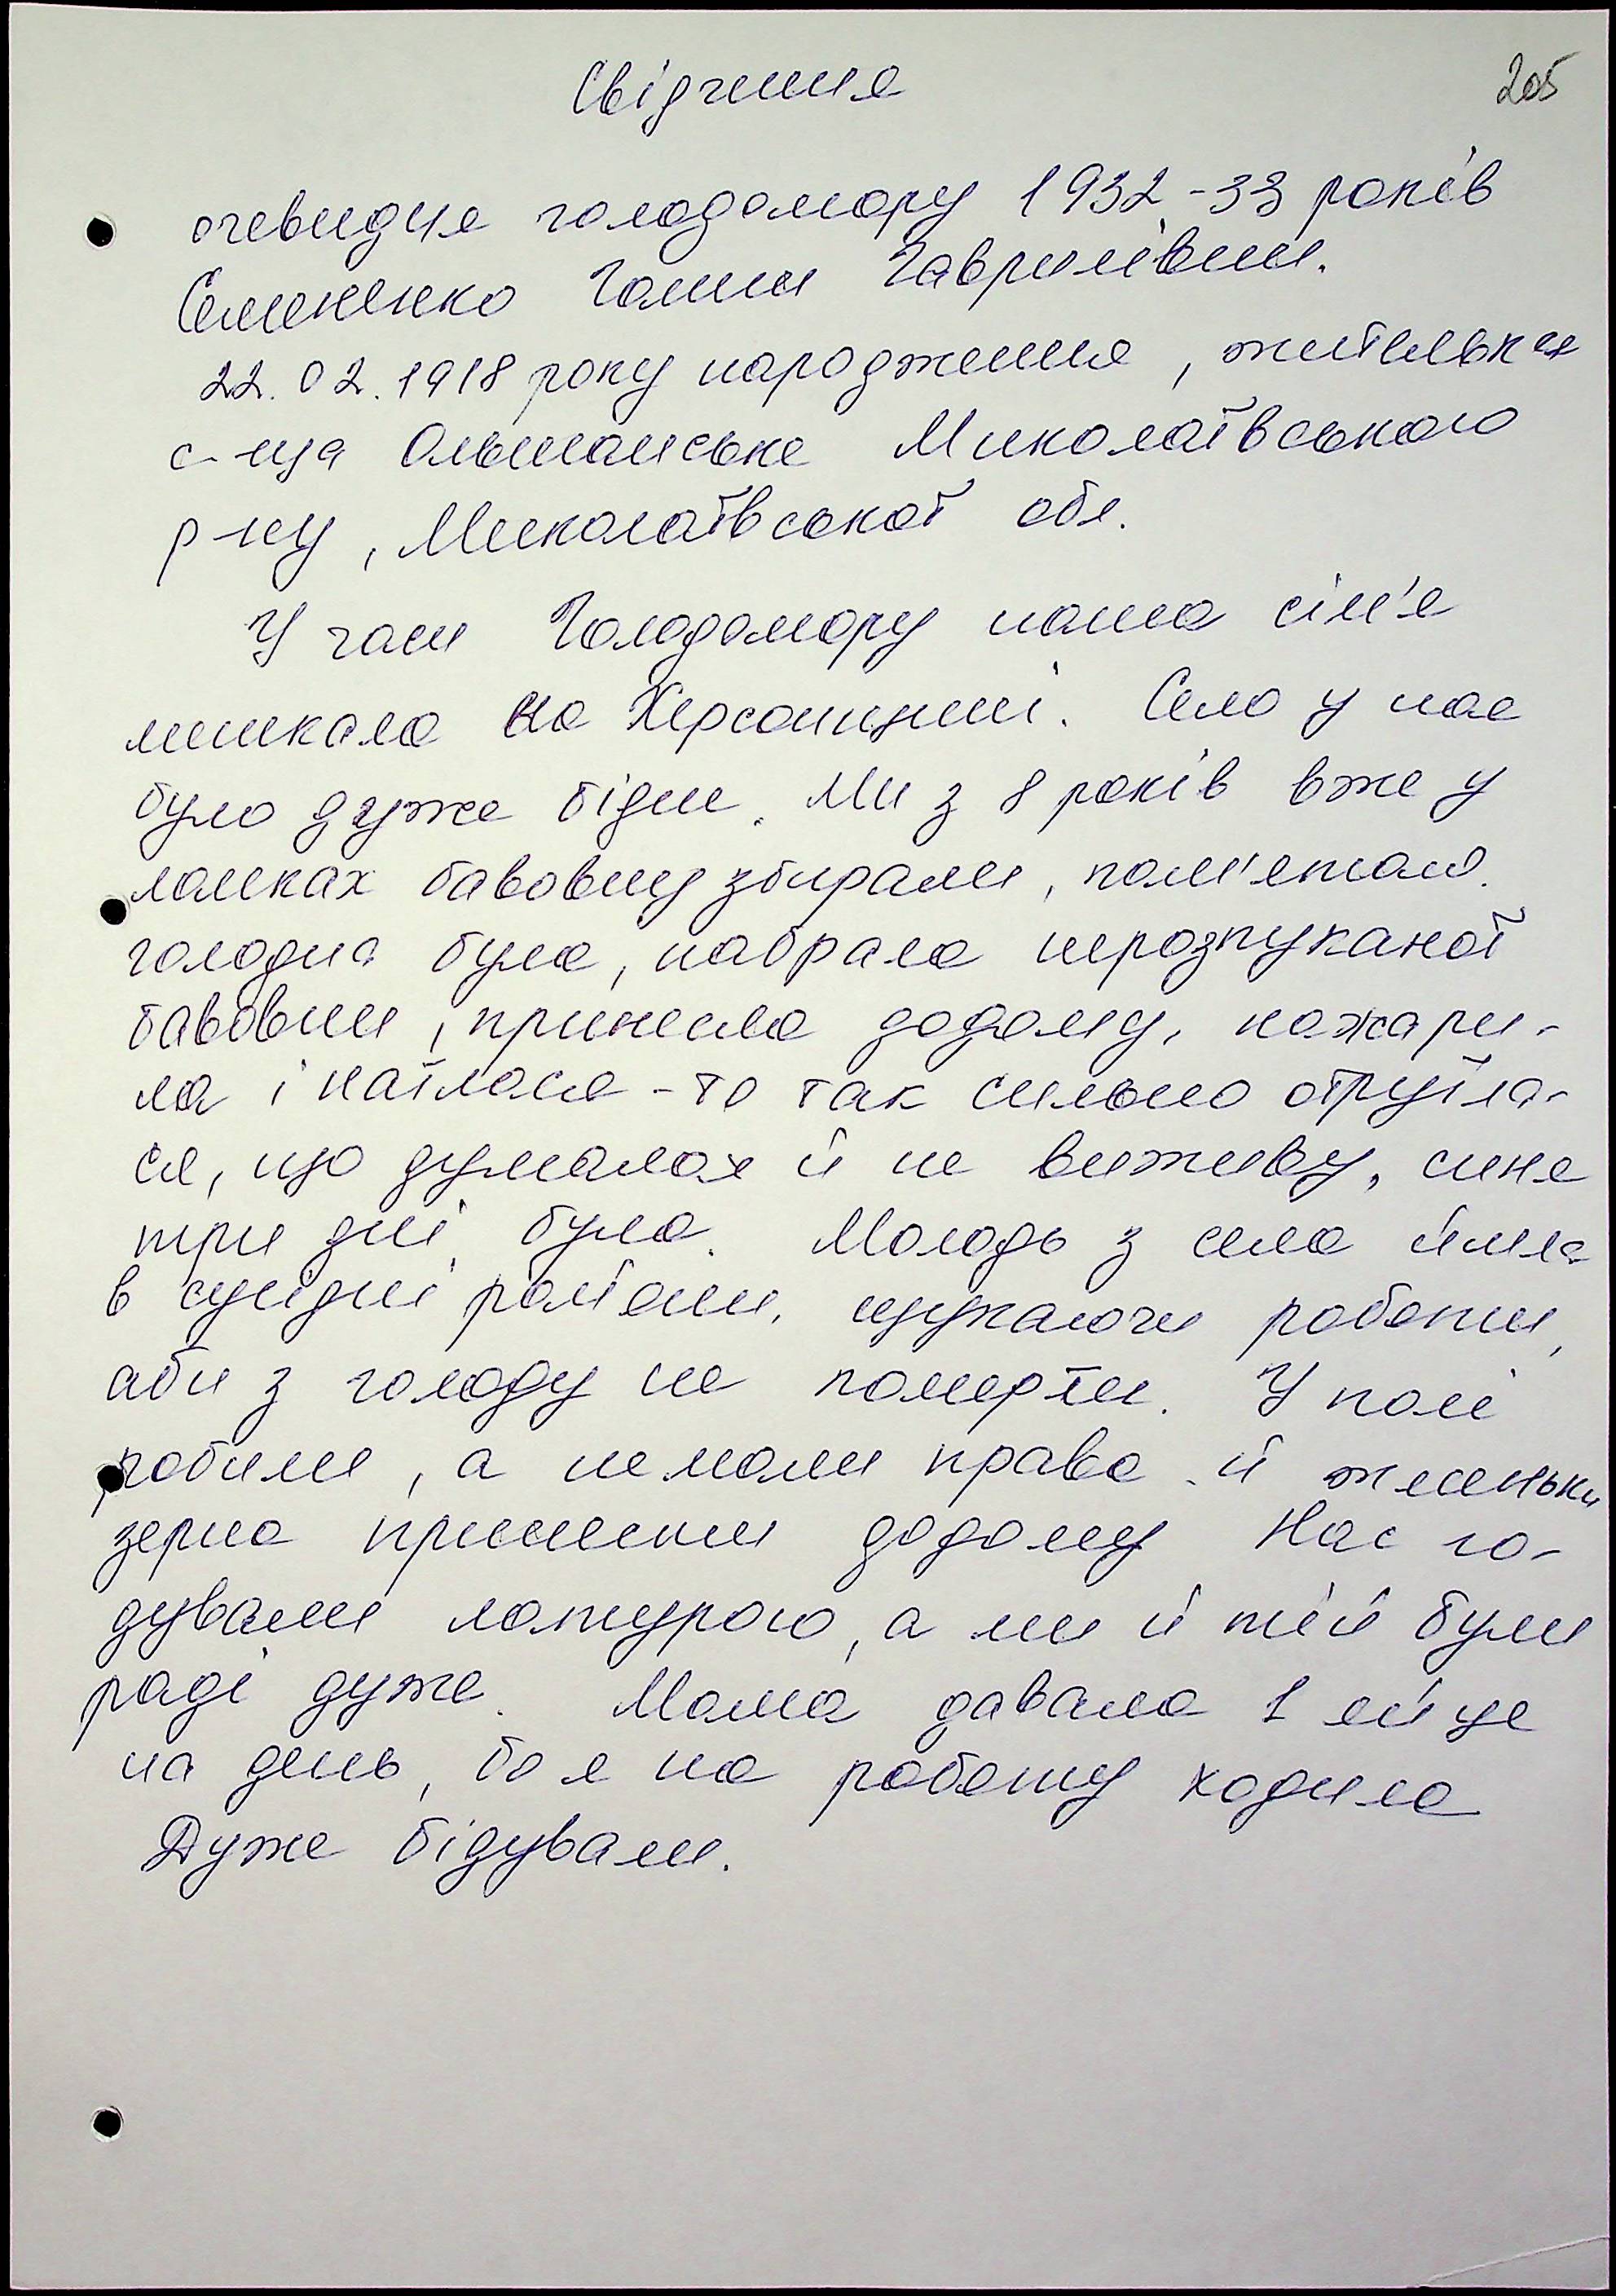 Свідчення
205
очевидця голодомору 1932-33 років
Семененко Галини Гаврилівни.
22.02.1918 року народження, жителька
с-ща Ольшанське Миколаївського
р-ну, Миколаївської обл.
У часи Голодомору наша сім'я
мешкала на Херсонщині. Село у нас
було дуже бідне. Ми з 8 років вже у
ланках бавовну збирали, пам'ятаю.
голодна була, набрала нерозпуканої
бавовни, принесла додому, нажари-
ла і наїлася - то так сильно отруїла-
ся, що думала й не виживу, синя
три дні була. Молодь з села йшла
в сусідні райони, шукаючи роботи,
аби з голоду не померти. У полі
робили, а не мали права й жменьки
зерна принести додому Нас го-
дували мотурою, а ми й тій були
раді дуже. Мама давала 1 яйце
на день, бо я на роботу ходила
Дуже бідували.